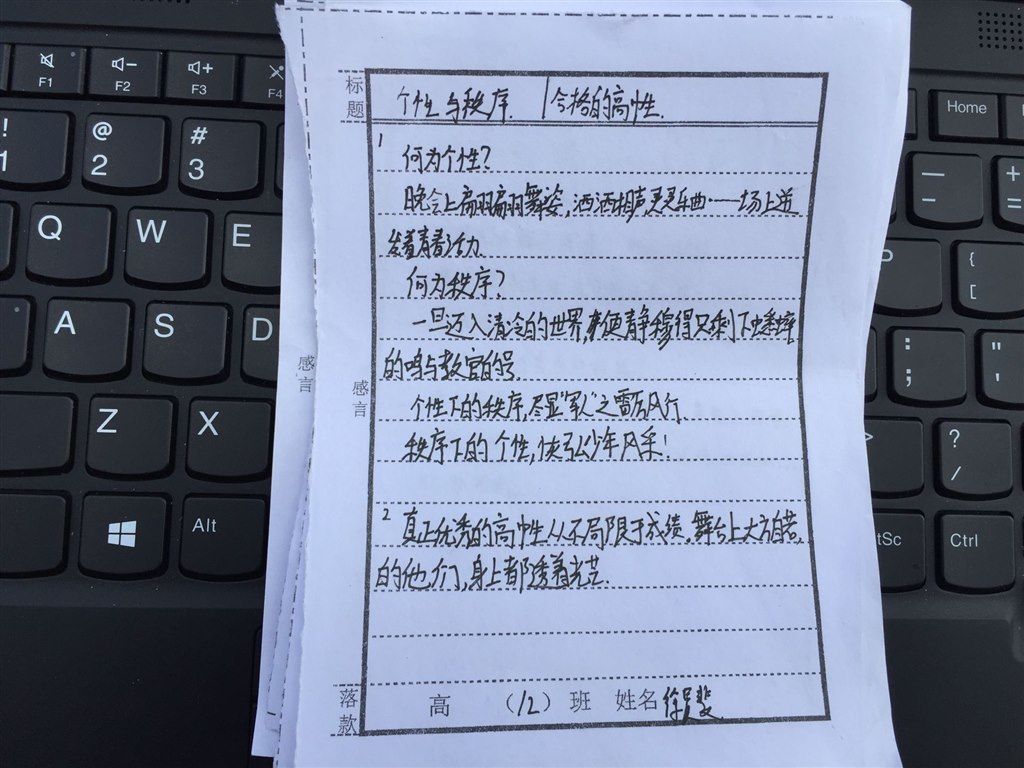 标题
个性与秩序 | 合格的高中生.
1 何为个性?
晚会上翩翩舞姿,洒洒相声灵灵乐曲……场上迸
发着青春活力.
何为秩序?
一旦迈入清冷的世界,便静穆得只剩下蟋蟀
的鸣与教官的号.
个性下的秩序,尽显“军人”之雷厉风行.
秩序下的个性,快弘少年风采!
2 真正优秀的高中生从不局限于成绩.舞台上大方自若
的他们,身上都透着光芒.
感言
感言
落款
高 (12) 班 姓名 徐
! 1
@ 2
# 3
F1 F2 F3 F4
Q W E
A S D
Z X
Alt
Home
P
{ [
: ;
" '
? /
>
tSc
Ctrl
— -
+ =